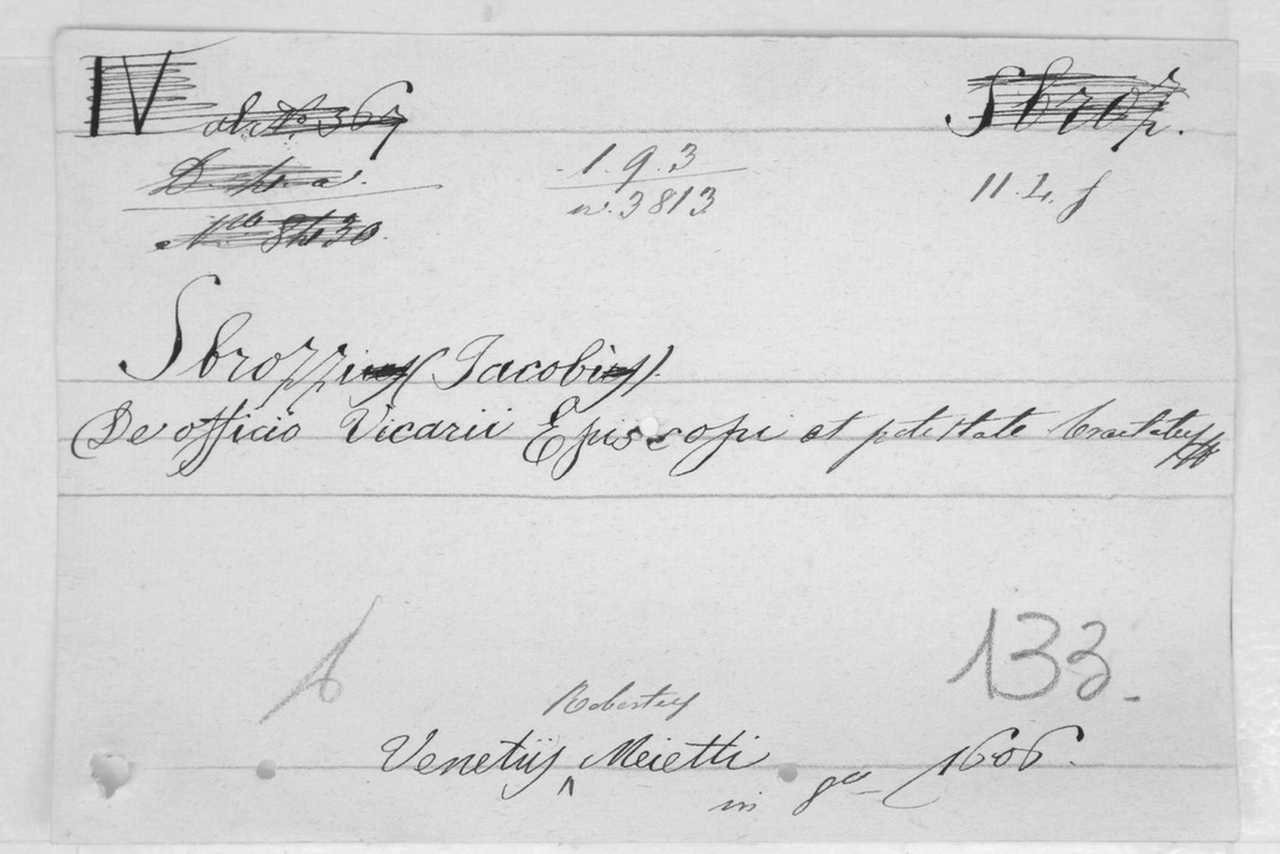 IV
Sbrozz.
1.9.3
n. 3813
11.4.f
Sbrozzius (Jacobus).
De officio Vicarii Episcopi et potestate tractatus
133.
Robertus
Venetijs Meietti 1606.
in 8vo